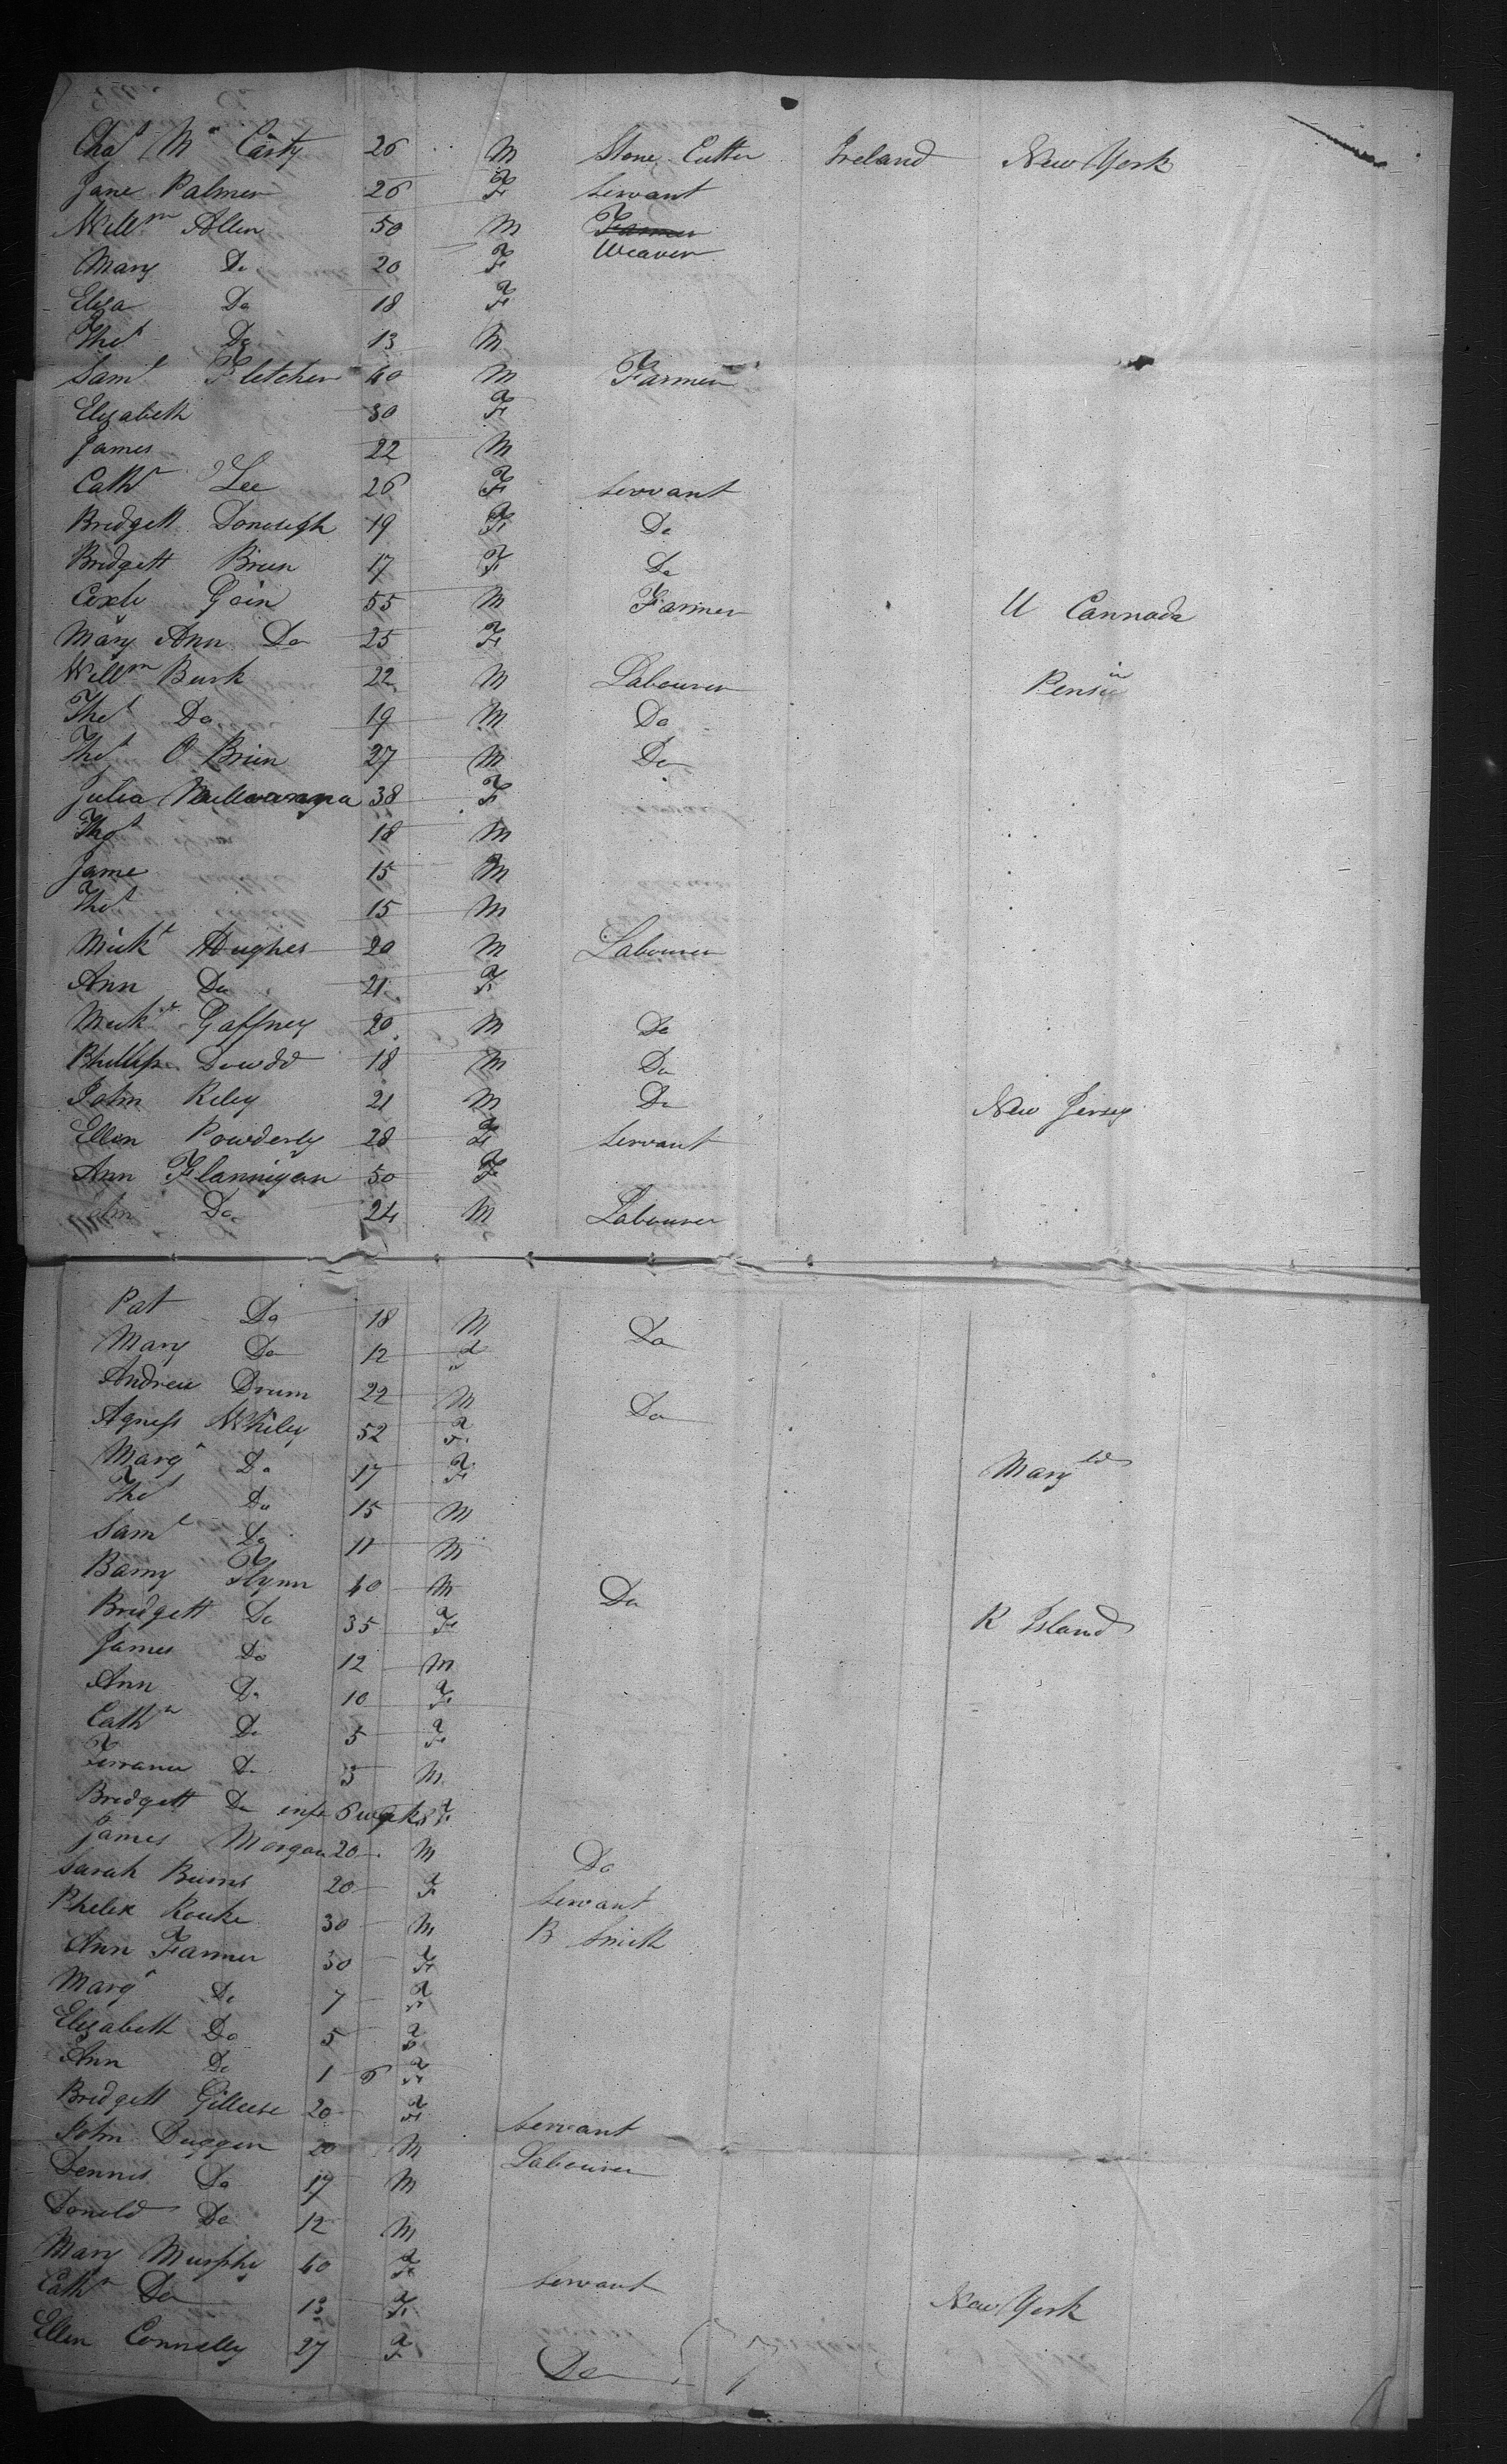 Chas Mc Carty 26 M Stone Cutter Ireland New York
Jane Palmer 26 F Servant
Willm Allen 50 M Farmer
Weaver
Mary Do 20 F
Eliza Do 18 F
Thos Do 13 M
Saml Fletcher 40 M Farmer
Elizabeth 30 F
James 22 M
Cathn Lee 26 F Servant
Bridgett 19 F Do
Bridgett Brien 17 F Do
Goin 55 M Farmer U Cannada
Mary Ann Do 25 F
Willm Burk 22 M Labourer Pensia
Thos Do 19 M Do
Thos O Brien 27 M Do
Julia 38 F
Thos 18 M
Jame 15 M
Thos 15 M
Mickl Hughes 20 M Labourer
Ann Do 21 F
Mickl Gaffney 20 M Do
Phillip Dowdd 18 M Do
John Reley 21 M Do New Jersey
Ellen Powderly 28 F Servant
Ann Flannigan 50 F
John Do 24 M Labourer
Pat Do 18 M Do
Mary Do 12 F
Andrew Drum 22 M Do
Agness Whiley 52 F
Margt Do 17 F Maryld
Thos Do 15 M
Saml Do 11 M
Barny Flynn 40 M Do
Bridgett Do 35 F R Island
James Do 12 M
Ann Do 10 F
Cathn Do 5 F
Terrance Do 3 M
Bridgett Do inft 6 weeks F
James Morgan 20 M Do
Sarah Burns 20 F Servant
Phelix Rouke 30 M B Smith
Ann Farmer 30 F
Margt Do 7 F
Elizabeth Do 5 F
Ann Do 1 6 F
Bridgett Gilleese 20 F Servant
John Duggan 20 M Labourer
Dennis Do 17 M
Donold Do 12 M
Mary Murphy 40 F Servant
Cathn Do 13 F New York
Ellen Connelly 27 F Do